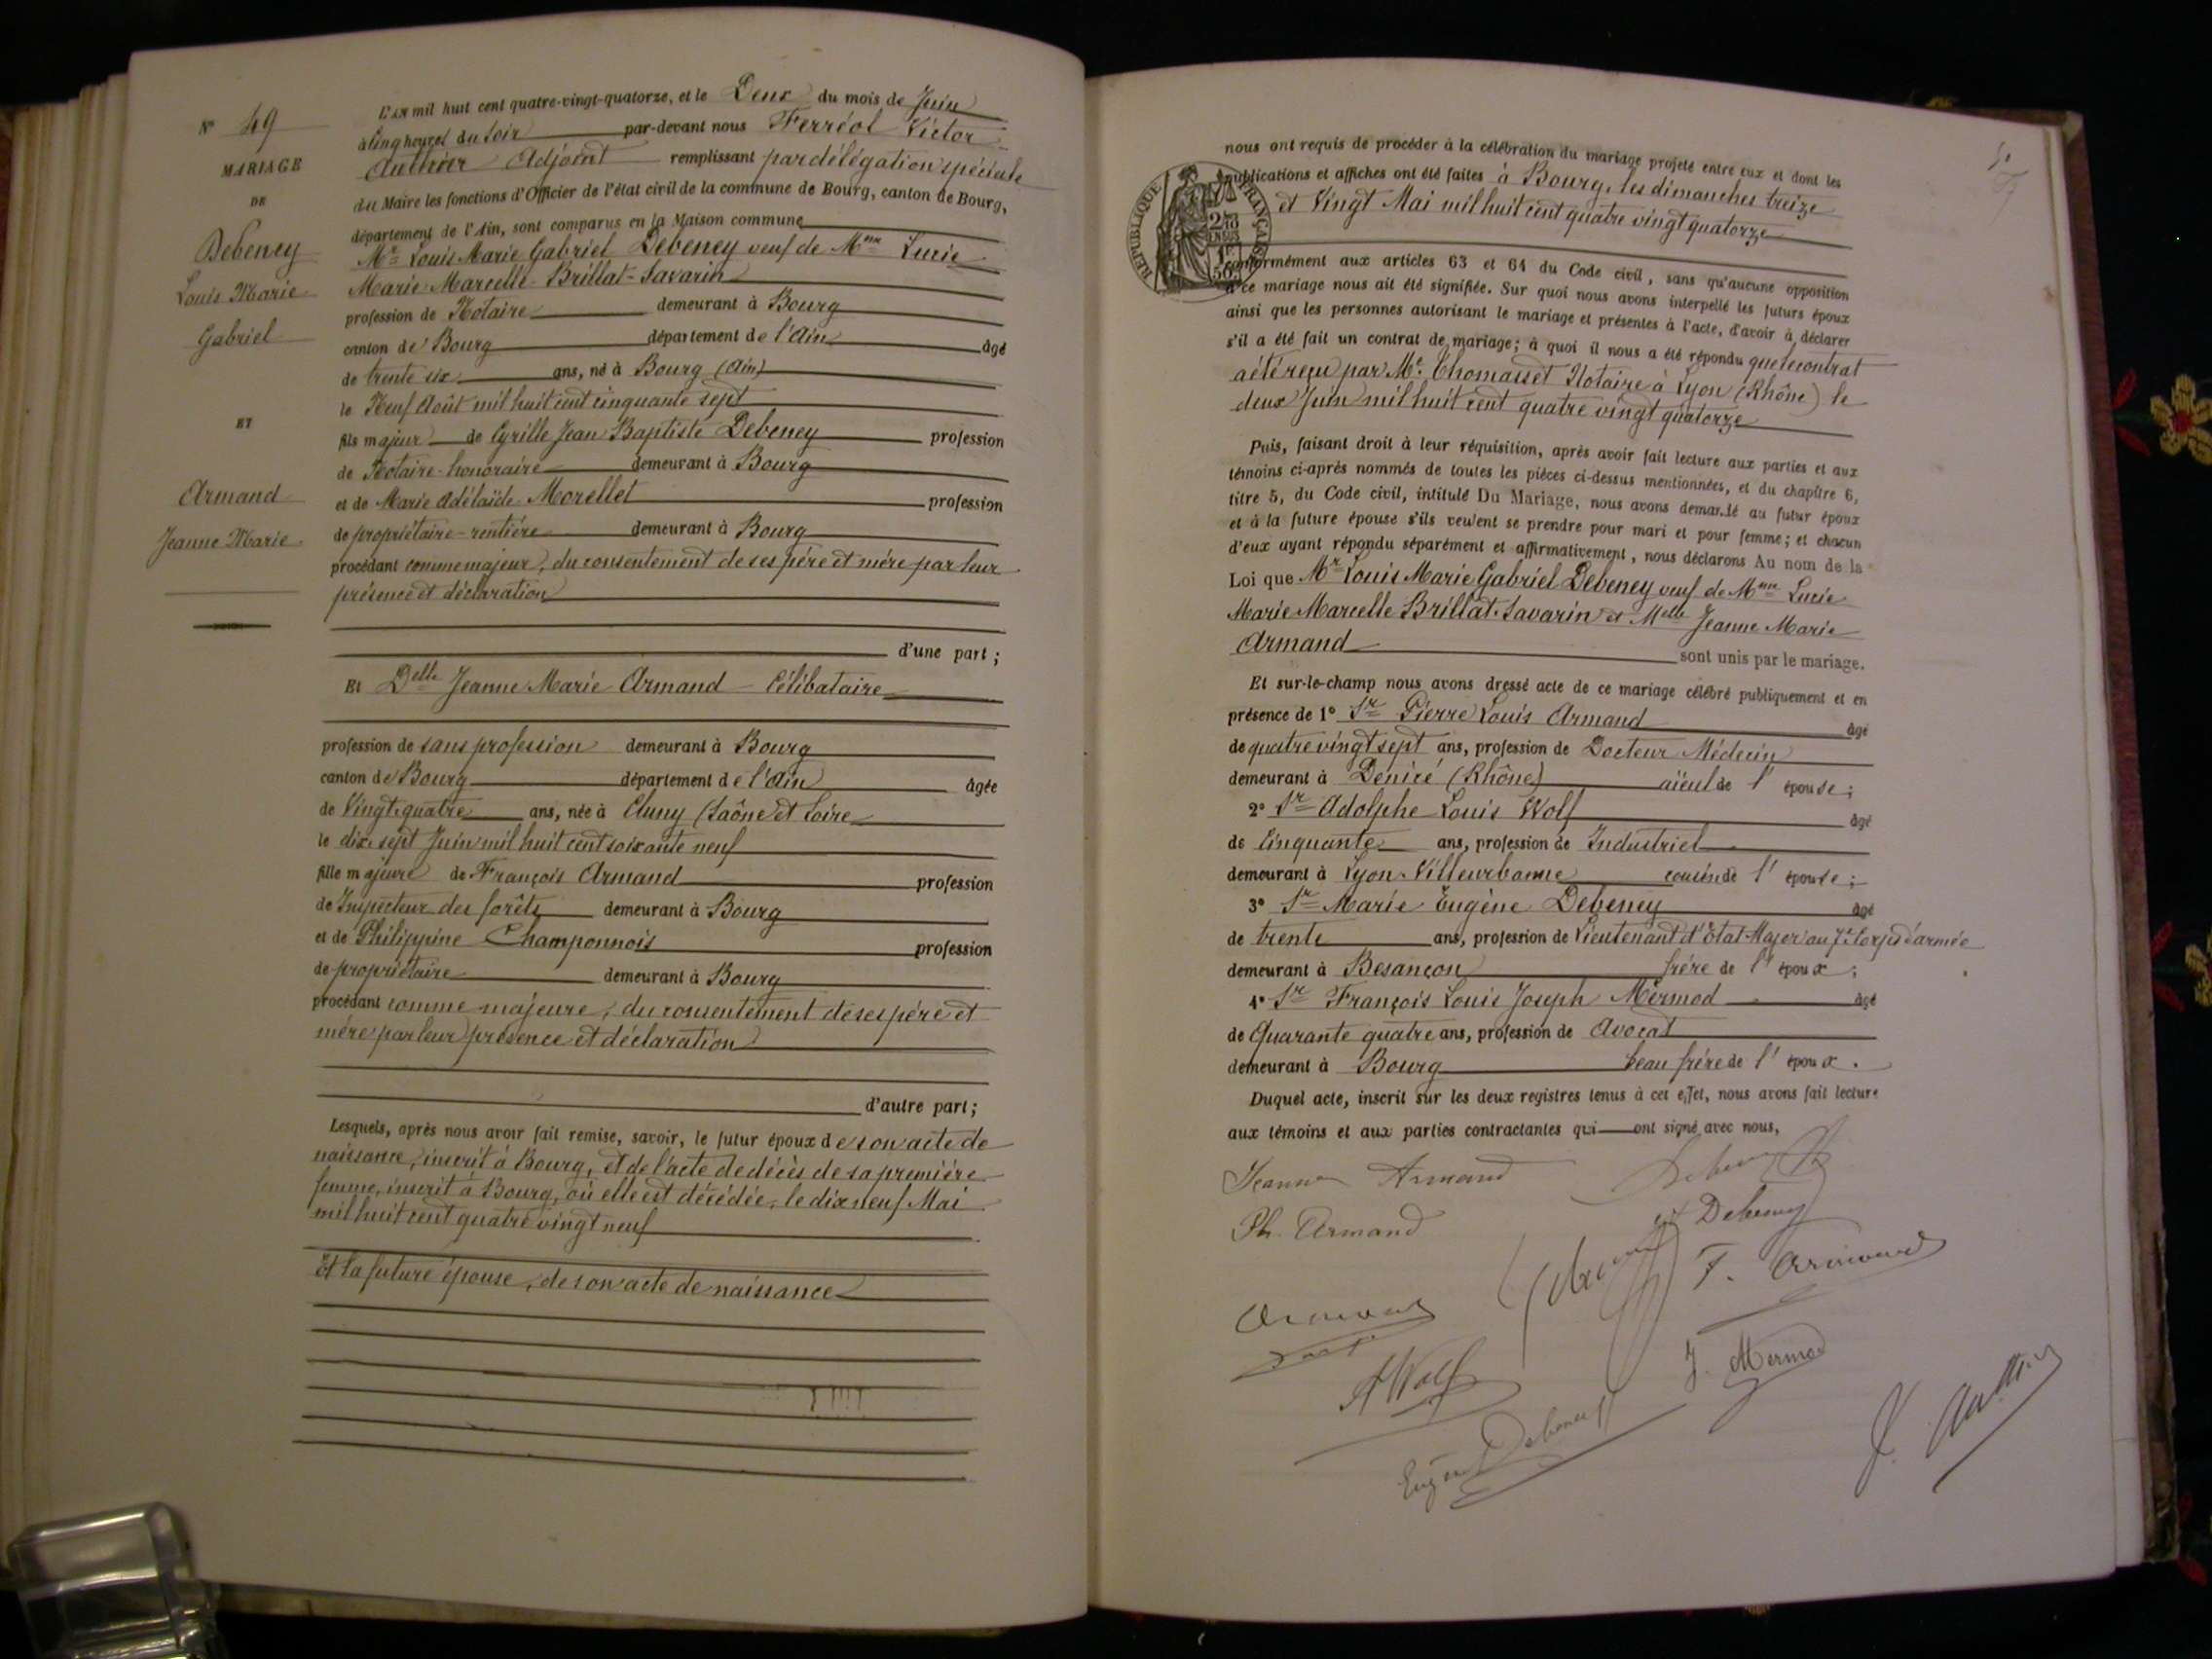 N° 49
MARIAGE
DE
Debeney
Louis Marie
Gabriel
ET
Armand
Jeanne Marie
L'an mil huit cent quatre-vingt-quatorze, et le Deux du mois de Juin
à cinq heures du soir par-devant nous Ferréol Victor
Authier Adjoint remplissant par délégation spéciale
du Maire les fonctions d'Officier de l'état civil de la commune de Bourg, canton de Bourg,
département de l'Ain, sont comparus en la Maison commune
Mr Louis Marie Gabriel Debeney veuf de Mme Lucie
Marie Marcelle Brillat-Savarin
profession de Notaire demeurant à Bourg
canton de Bourg département de l'Ain âgé
de trente six ans, né à Bourg (Ain)
le Neuf Août mil huit cent cinquante sept
fils majeur de Cyrille Jean Baptiste Debeney profession
de Notaire-honoraire demeurant à Bourg
et de Marie Adélaïde Morellet profession
de propriétaire-rentière demeurant à Bourg
procédant comme majeur, du consentement de ses père et mère par leur
présence et déclaration
d'une part ;
Et Delle Jeanne Marie Armand Célibataire
profession de sans profession demeurant à Bourg
canton de Bourg département de l'Ain âgée
de Vingt-quatre ans, née à Cluny (Saône et Loire
le dix-sept Juin mil huit cent soixante neuf
fille majeure de François Armand profession
de Inspecteur des forêts demeurant à Bourg
et de Philippine Champonnois profession
de propriétaire demeurant à Bourg
procédant comme majeure, du consentement de ses père et
mère par leur présence et déclaration
d'autre part ;
Lesquels, après nous avoir fait remise, savoir, le futur époux de son acte de
naissance, inscrit à Bourg, et de l'acte de décès de sa première
femme, inscrit à Bourg, où elle est décédée, le dix neuf Mai
mil huit cent quatre vingt neuf
Et la future épouse, de son acte de naissance
nous ont requis de procéder à la célébration du mariage projeté entre eux et dont les
publications et affiches ont été faites à Bourg, les dimanches treize
et Vingt Mai mil huit cent quatre vingt quatorze
REPUBLIQUE FRANÇAISE
conformément aux articles 63 et 64 du Code civil, sans qu'aucune opposition
à ce mariage nous ait été signifiée. Sur quoi nous avons interpellé les futurs époux
ainsi que les personnes autorisant le mariage et présentes à l'acte, d'avoir à déclarer
s'il a été fait un contrat de mariage; à quoi il nous a été répondu que le contrat
a été reçu par Me Thomasset Notaire à Lyon (Rhône) le
deux Juin mil huit cent quatre vingt quatorze
Puis, faisant droit à leur réquisition, après avoir fait lecture aux parties et aux
témoins ci-après nommés de toutes les pièces ci-dessus mentionnées, et du chapitre 6,
titre 5, du Code civil, intitulé Du Mariage, nous avons demandé au futur époux
et à la future épouse s'ils veulent se prendre pour mari et pour femme; et chacun
d'eux ayant répondu séparément et affirmativement, nous déclarons Au nom de la
Loi que Mr Louis Marie Gabriel Debeney veuf de Mme Lucie
Marie Marcelle Brillat-Savarin et Melle Jeanne Marie
Armand sont unis par le mariage.
Et sur-le-champ nous avons dressé acte de ce mariage célébré publiquement et en
présence de 1° Sr Pierre Louis Armand âgé
de quatre vingt sept ans, profession de Docteur Médecin
demeurant à Denicé (Rhône) aïeul de l'épouse ;
2° Sr Adolphe Louis Wolf âgé
de Cinquante ans, profession de Industriel
demeurant à Lyon-Villeurbanne cousin de l'épouse ;
3° Sr Marie Eugène Debeney âgé
de trente ans, profession de Lieutenant d'Etat Major au 7e Corps d'armée
demeurant à Besançon frère de l'époux ;
4° Sr François Louis Joseph Mermod âgé
de Quarante quatre ans, profession de Avocat
demeurant à Bourg beau frère de l'époux.
Duquel acte, inscrit sur les deux registres tenus à cet effet, nous avons fait lecture
aux témoins et aux parties contractantes qui ont signé avec nous,
Jeanne Armand
Ph. Armand
Debeney
F. Armand
Armand
A Wolf
J. Mermod
Eugène Debeney